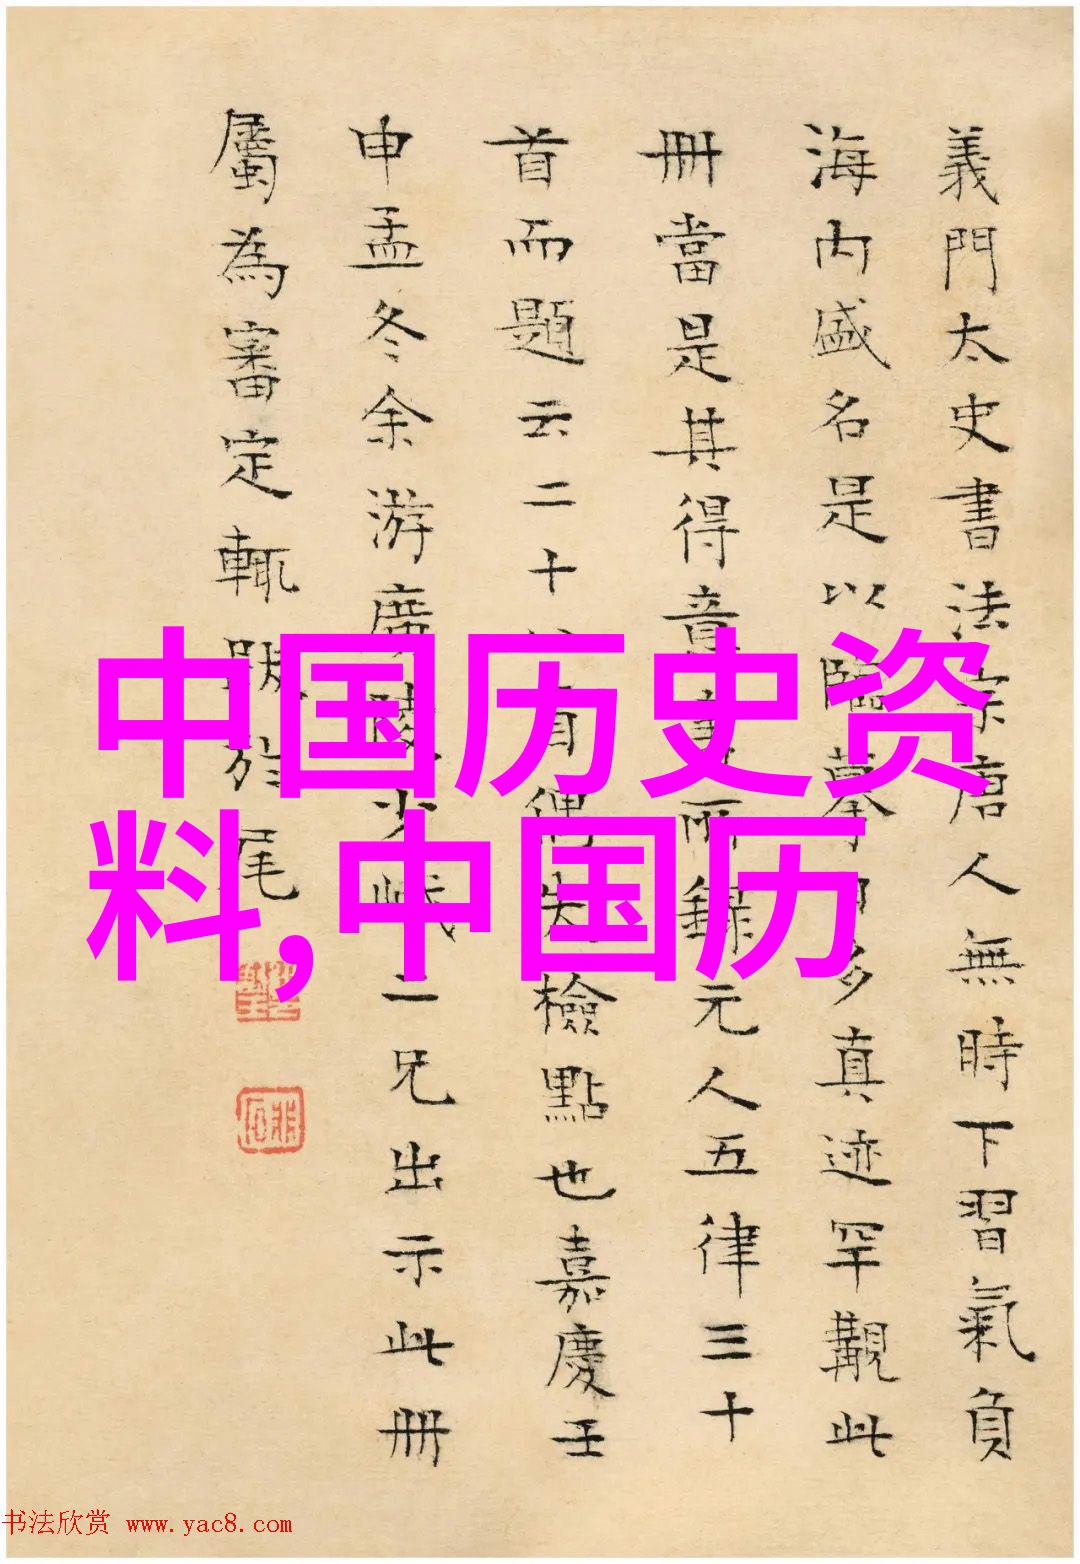 義門太史書法宗唐人無時下習氣負
海内盛名是以臨摹即多真迹罕觀此
冊當是其得意書所錄元人五律三十
首而題云二十首偶失檢點也嘉慶壬
申孟冬余游廣陵少峨二兄出示此冊
屬為審定輒跋於尾
中国历史资
料,中国历
书法欣赏 www.yac8.com